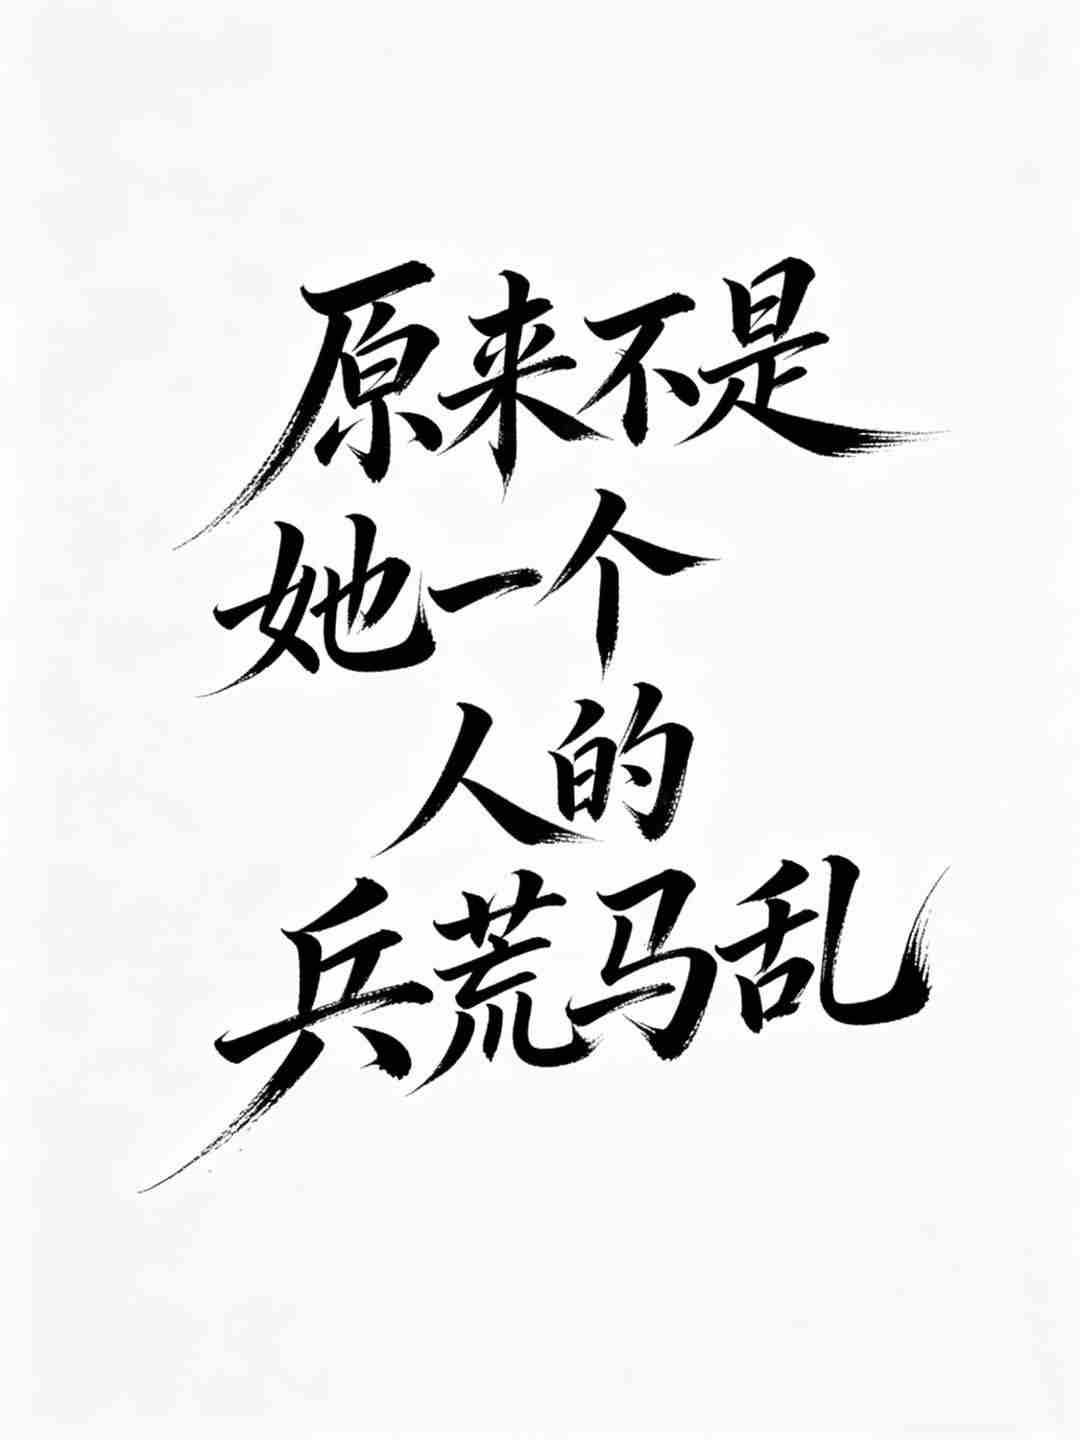 原来不是
她一个
人的
兵荒马乱